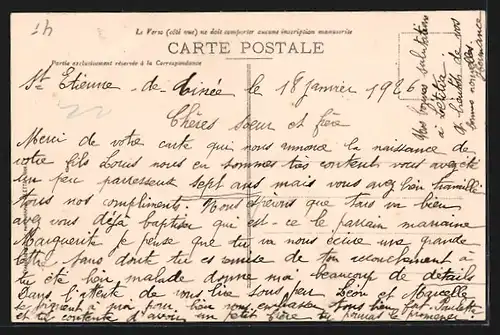 14
Le Verso (côté vue) ne doit comporter aucune inscription manuscrite
CARTE POSTALE
Partie exclusivement réservée à la Correspondance
St Etienne - de tinée, le 18 janvier 1926
Chères Soeur et frère
Merci de votre carte qui nous annonce la naissance de
votre fils nous en sommes très content vous avez été
un peu paresseux sept ans mais vous avez bien travaillé
tous nos compliments. Nous espérons que tous va bien
avez vous déjà baptisé qui est-ce le parrain marraine
Marguerite je pense que tu va nous écrire une grande
lettre sans doute tu es remise de ton accouchement a
tu été bien malade donne moi beaucoup de détails
Dans l'attente de vous lire tous Léon et Marcelle
se joignent à moi pour bien vous embrasser
et contente d'avoir un petit frère tu pourras le promener
Mes bonnes salutations
à Létitia
à bientôt de vos
bonnes nouvelles